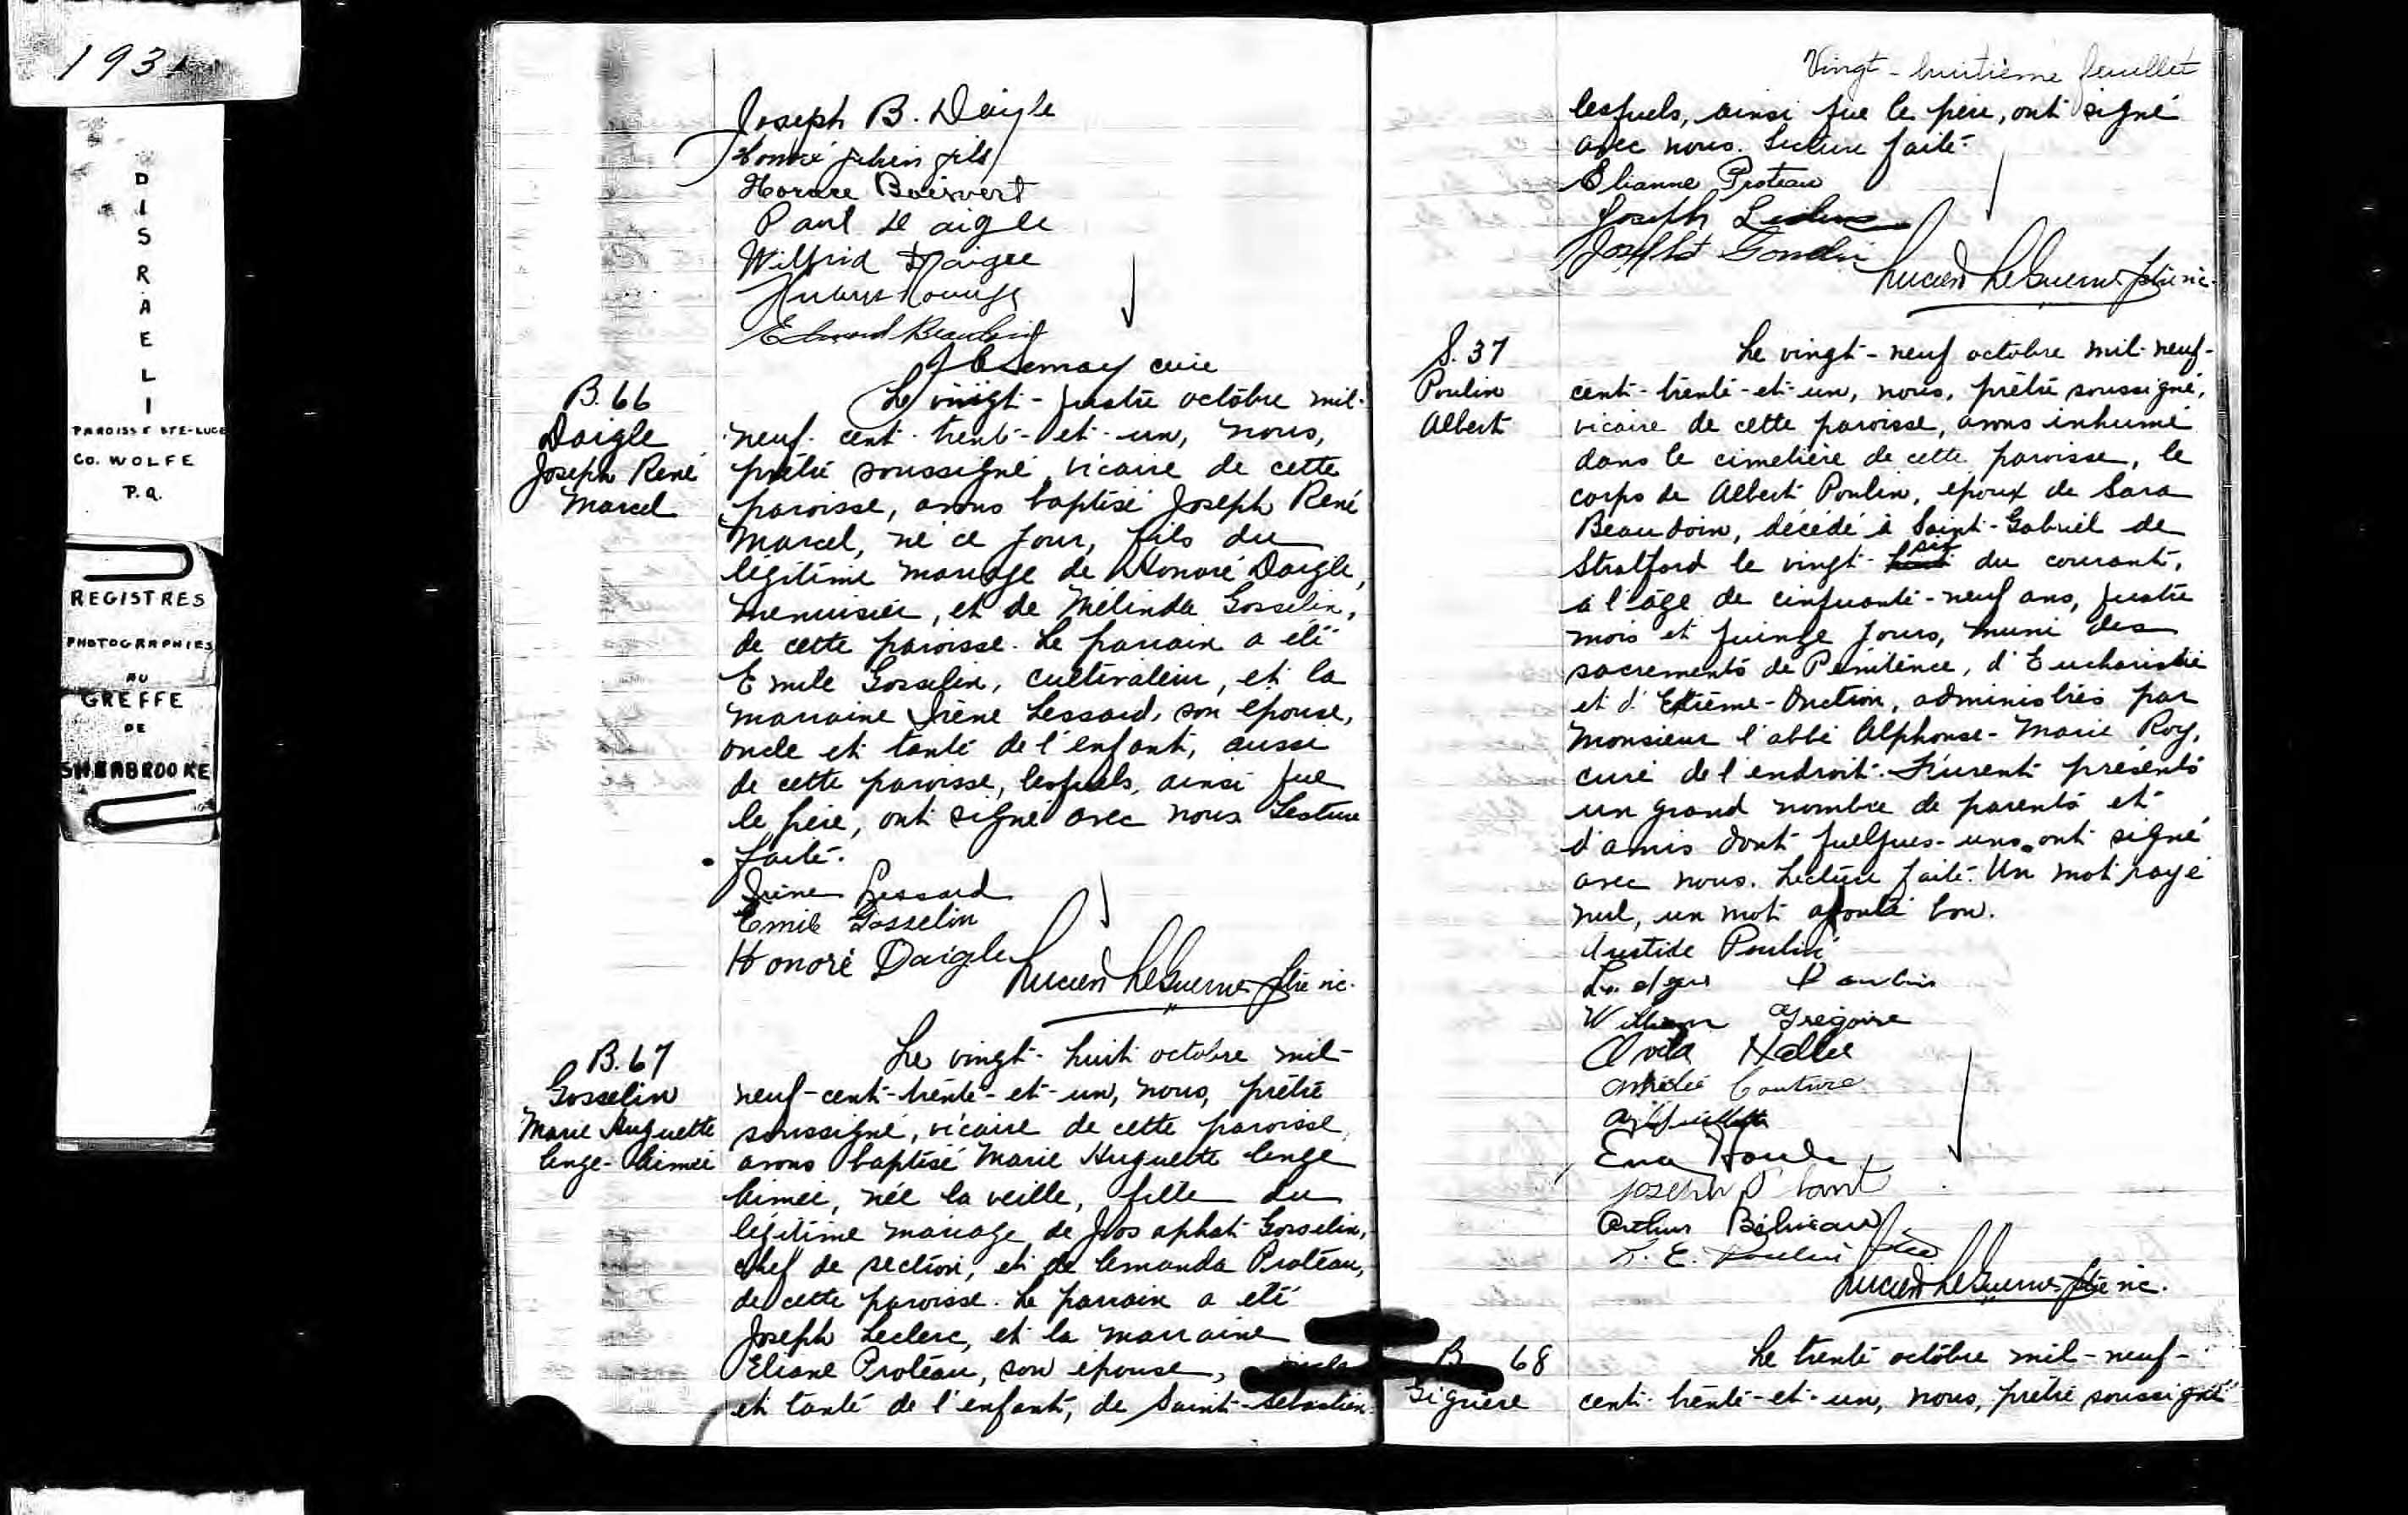 1931
DISRAELI
PAROISSE STE-LUCE
CO. WOLFE
P.Q.
REGISTRES
PHOTOGRAPHIÉS
AU
GREFFE
DE
SHERBROOKE
Joseph B. Daigle
fils
Horace Boisvert
Paul Daigle
Wilfrid Daigle
Edmond Beaudoin
Lemay curé
B. 66
Daigle
Joseph René
Marcel
Le vingt-quatre octobre mil-
neuf-cent-trente-et-un, nous,
prêtre soussigné, vicaire de cette
paroisse, avons baptisé Joseph René
Marcel, né ce jour, fils du
légitime mariage de Honoré Daigle,
menuisier, et de Mélinda Gosselin,
de cette paroisse. Le parrain a été
Emile Gosselin, cultivateur, et la
marraine Irène Lessard, son épouse,
oncle et tante de l'enfant, aussi
de cette paroisse, lesquels, ainsi que
le père, ont signé avec nous. Lecture
faite.
Irène Lessard
Emile Gosselin
Honoré Daigle
Lucien LeGuerne ptre vic.
B. 67
Gosselin
Marie Huguette
Ange-Aimée
Le vingt-huit octobre mil-
neuf-cent-trente-et-un, nous, prêtre
soussigné, vicaire de cette paroisse,
avons baptisé Marie Huguette Ange
Aimée, née la veille, fille du
légitime mariage de Josaphat Gosselin,
chef de section, et de Amanda Protéau,
de cette paroisse. Le parrain a été
Joseph Leclerc, et la marraine
Eliane Protéau, son épouse, oncle
et tante de l'enfant, de Saint-Sébastien
Vingt-huitième feuillet
lesquels, ainsi que le père, ont signé
avec nous. Lecture faite.
Elianne Proteau
Joseph
Lucien LeGuerne ptre vic.
S. 37
Poulin
Albert
Le vingt-neuf octobre mil-neuf-
cent-trente-et-un, nous, prêtre soussigné,
vicaire de cette paroisse, avons inhumé
dans le cimetière de cette paroisse, le
corps de Albert Poulin, époux de Sara
Beaudoin, décédé à Saint-Gabriel de
Stratford le vingt-huit six du courant,
à l'âge de cinquante-neuf ans, quatre
mois et quinze jours, muni des
sacrements de Pénitence, d'Eucharistie
et d'Extrême-Onction, administrés par
Monsieur l'abbé Alphonse-Marie Roy,
curé de l'endroit. Furent présents
un grand nombre de parents et
d'amis dont quelques-uns ont signé
avec nous. Lecture faite. Un mot rayé
nul, un mot ajouté bon.
Aristide Poulin
Ludger Poulin
William Grégoire
Ovila Hallée
Amédée Couture
Eva Houle
Joseph Plant
Arthur Béliveau
E. Poulin ptre
Lucien LeGuerne ptre vic.
B 68
Giguère
Le trente octobre mil-neuf-
cent-trente-et-un, nous, prêtre soussigné